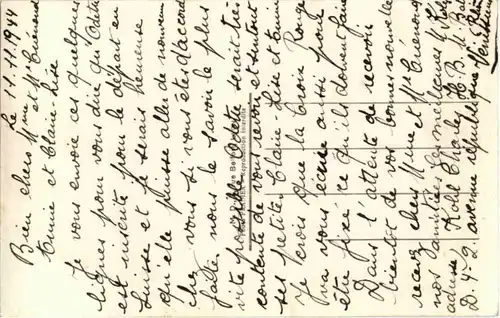 Le 11.11.1944
Bien chers Mme et Mr Cuénod
Annie et Claire-Lise
Je vous envoie ces quelques
lignes pour vous dire qu'Odette
est inscrite pour le départ en
Suisse et je serais heureuse
qu'elle puisse aller de nouveau
chez vous si vous êtes d'accord
faites nous le savoir le plus
vite possible. Odette serait très
contente de vous revoir et surtout
ses petites Claire-Lise et Annie
Je crois que la Croix Rouge
va vous écrire aussi pour
être fixé ce qu'ils doivent faire
Dans l'attente de recevoir
bientôt de vos bonnes nouvelles
recevez chers Mme et Mr Cuénod
nos familles les meilleures
adresse Kohl Charles H.B.
D. 4. 2. avenue république